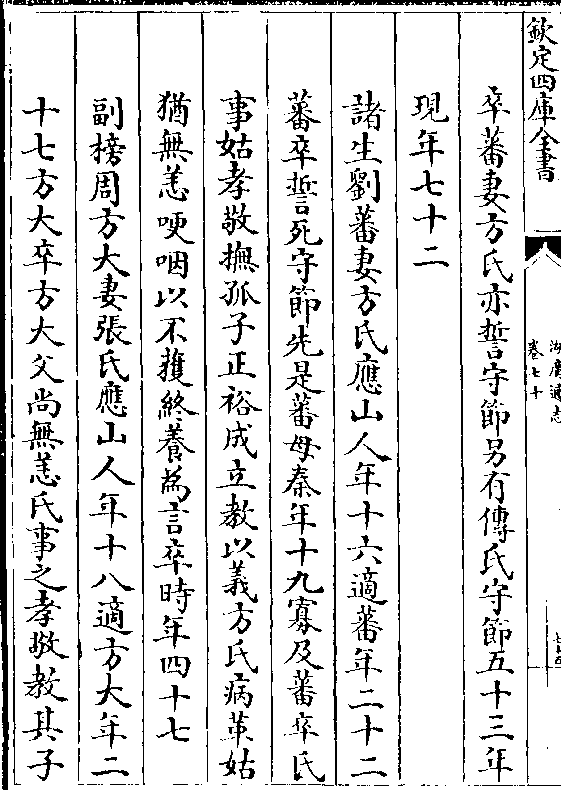 欽定四庫全書
湖廣通志
卷七十
卒蕃妻方氏亦誓守節另有傳氏守節五十三年
現年七十二
諸生劉蕃妻方氏應山人年十六適蕃年二十二
蕃卒誓死守節先是蕃母秦年十九寡及蕃卒氏
事姑孝敬撫孤子正裕成立教以義方氏病革姑
猶無恙哽咽以不獲終養為言卒時年四十七
副榜周方大妻張氏應山人年十八適方大年二
十七方大卒方大父尚無恙氏事之孝敬教其子